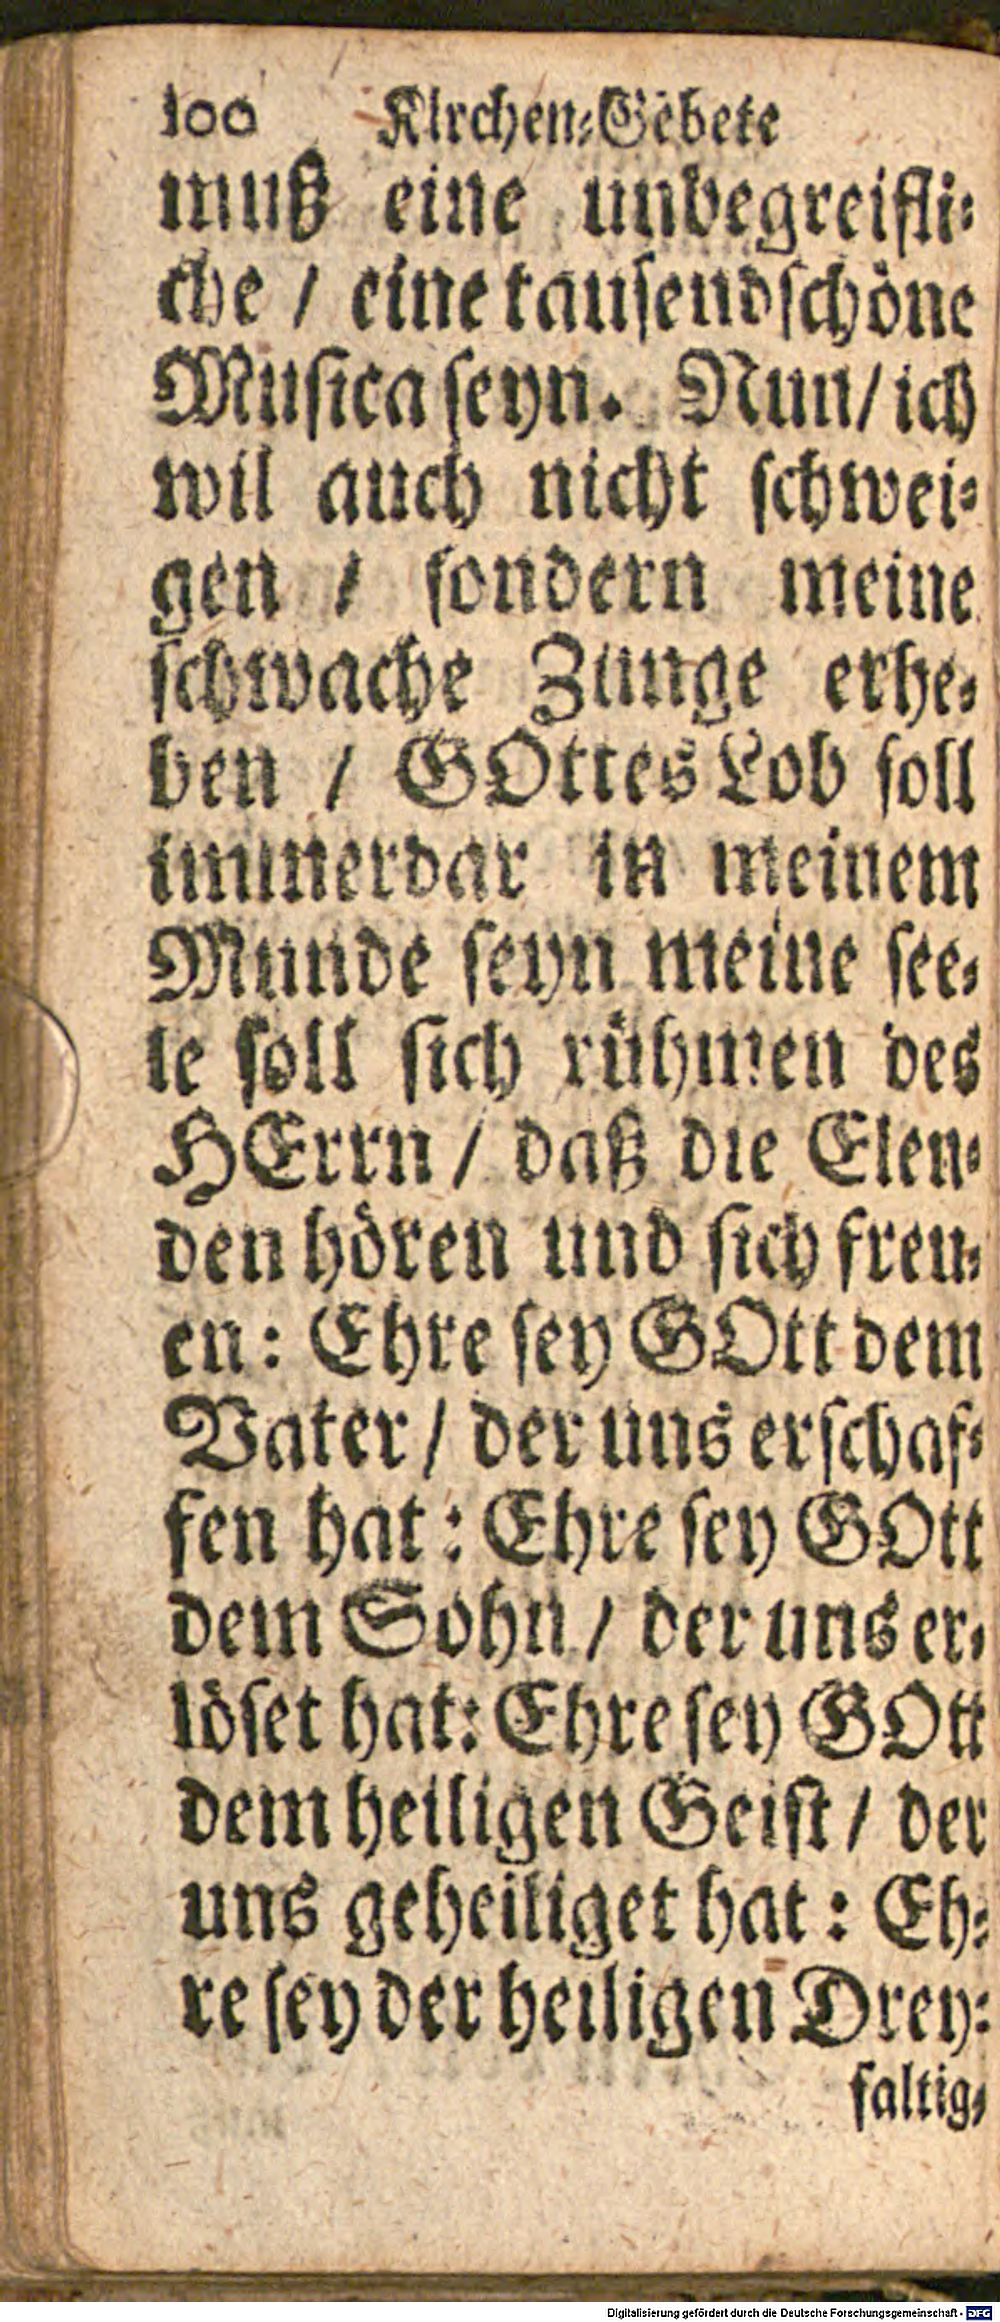 100 Kirchen-Gebete
muß eine unbegreifli-
che / eine tausendschöne
Musica seyn. Nun/ ich
wil auch nicht schwei-
gen / sondern meine
schwache Zunge erhe-
ben / GOttes Lob soll
immerdar in meinem
Munde seyn meine see-
le soll sich rühmen des
HErrn / daß die Elen-
den hören und sich freu-
en: Ehre sey GOtt dem
Vater / der uns erschaf-
fen hat: Ehre sey GOtt
dem Sohn / der uns er-
löset hat: Ehre sey GOtt
dem heiligen Geist / der
uns geheiliget hat: Eh-
re sey der heiligen Drey-
faltig-
Digitalisierung gefördert durch die Deutsche Forschungsgemeinschaft - DFG